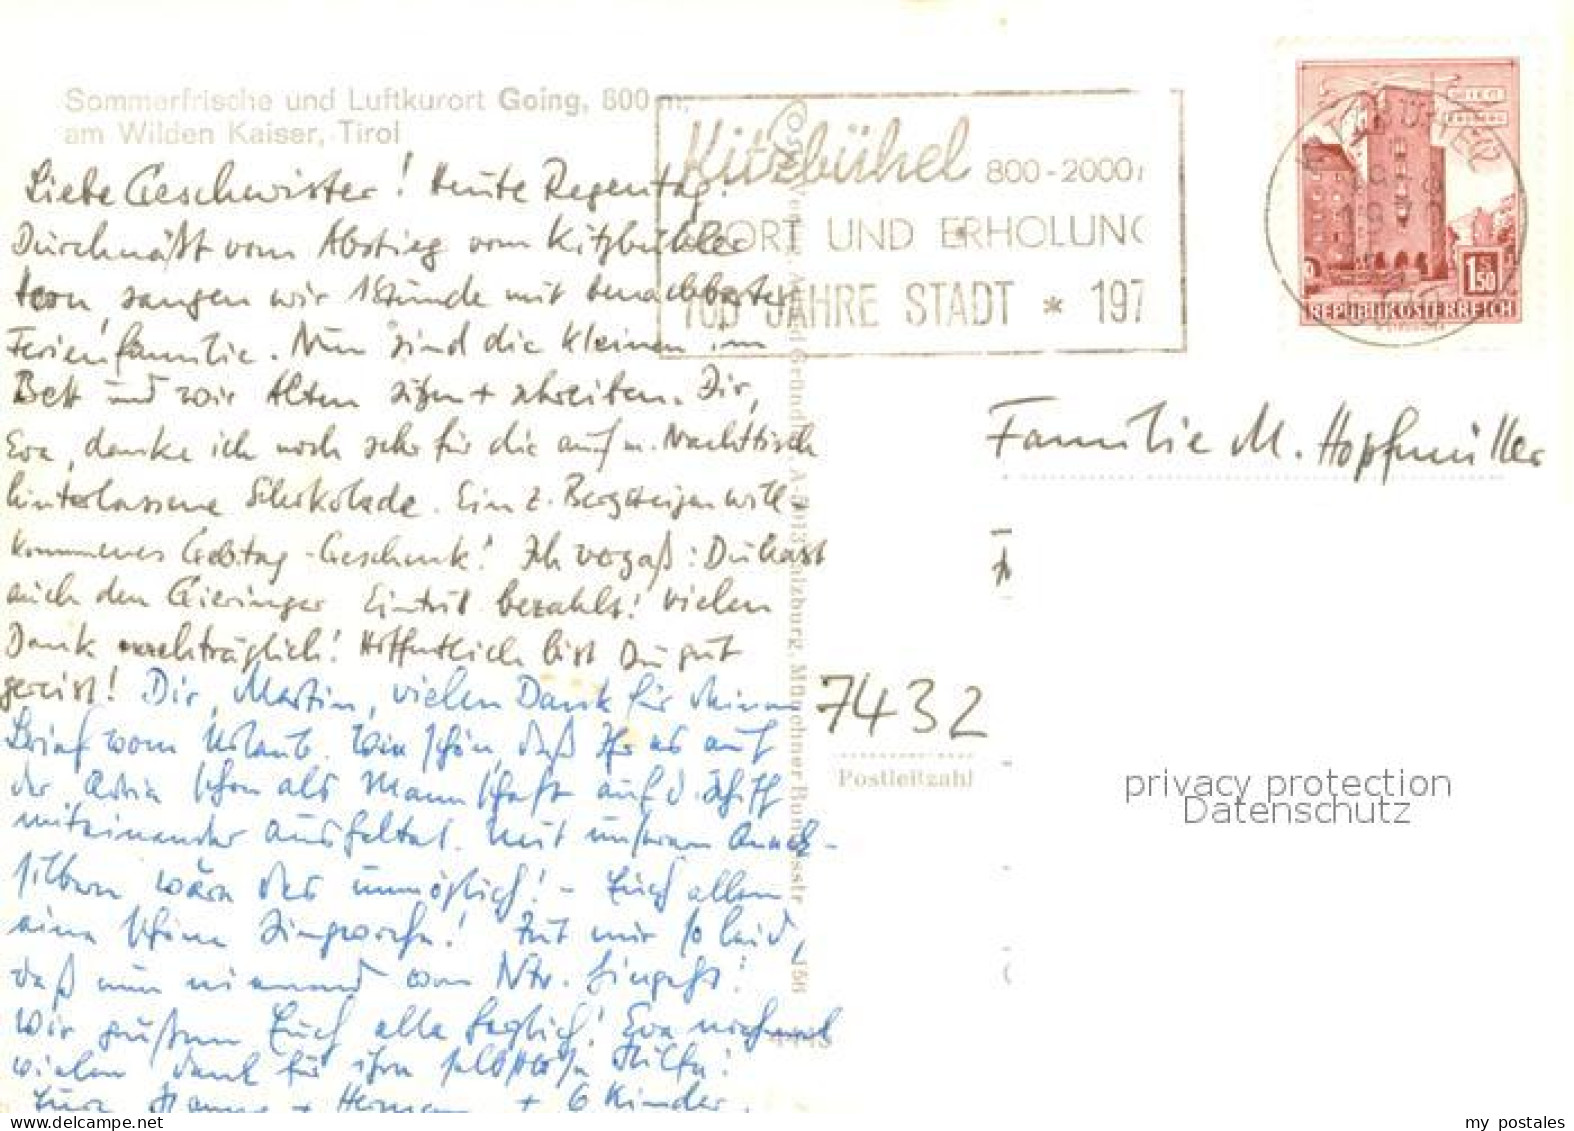 Sommerfrische und Luftkurort Going, 800 m,
am Wilden Kaiser, Tirol
Kitzbühel 800-2000
SPORT UND ERHOLUNG
700 JAHRE STADT * 197
WIEN
REPUBLIK ÖSTERREICH
1.50
S
Liebe Geschwister! Heute Regentag!
Durchnäßt vom Abstieg vom Kitzbühler
Horn, sangen wir 1 Stunde mit benachbarter
Ferienfamilie. Nun sind die Kleinen im
Bett und wir Alten sitzen + schreiben. Dir,
Eva, danke ich noch sehr für die auf m. Nachttisch
hinterlassene Schokolade. Ein z. Bergsteigen will-
kommenes Gebtag-Geschenk! Ich vergaß: Du hast
auch den Gieringer Eintritt bezahlt! Vielen
Dank nachträglich! Hoffentlich bist Du gut
gereist! Dir, Martin, vielen Dank für deinen
Brief vom Urlaub. Wie schön, daß Ihr es auf
der Adria schon als Mannschaft auf d. Schiff
miteinander aushaltet. Mit unseren Queck-
silbern wäre das unmöglich! - Euch allen
eine schöne Singwoche! Tut mir so leid,
daß nun niemand von Ntr. hingeht!
Wir grüßen Euch alle herzlich! Eva nochmal
vielen Dank für ihre selbstlose Hilfe!
Eure Hanne + Hermann + 6 Kinder.
Familie M. Hopfmüller
7432
Postleitzahl
privacy protection
Datenschutz
my postales